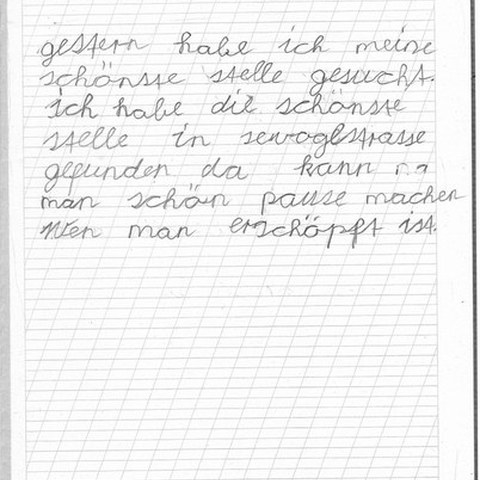 gestern habe ich meine
schönste stelle gesucht.
ich habe die schönste
stelle in sevoglstrasse
gefunden da kann
man schön pause machen
wen man erschöpft ist.